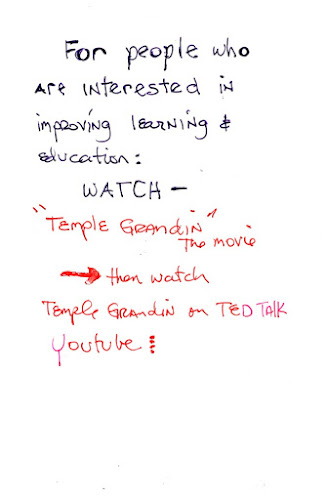 For people who
are interested in
improving learning &
education:
WATCH –
"Temple Grandin"
The movie
→ then watch
Temple Grandin on TED TALK
Youtube!